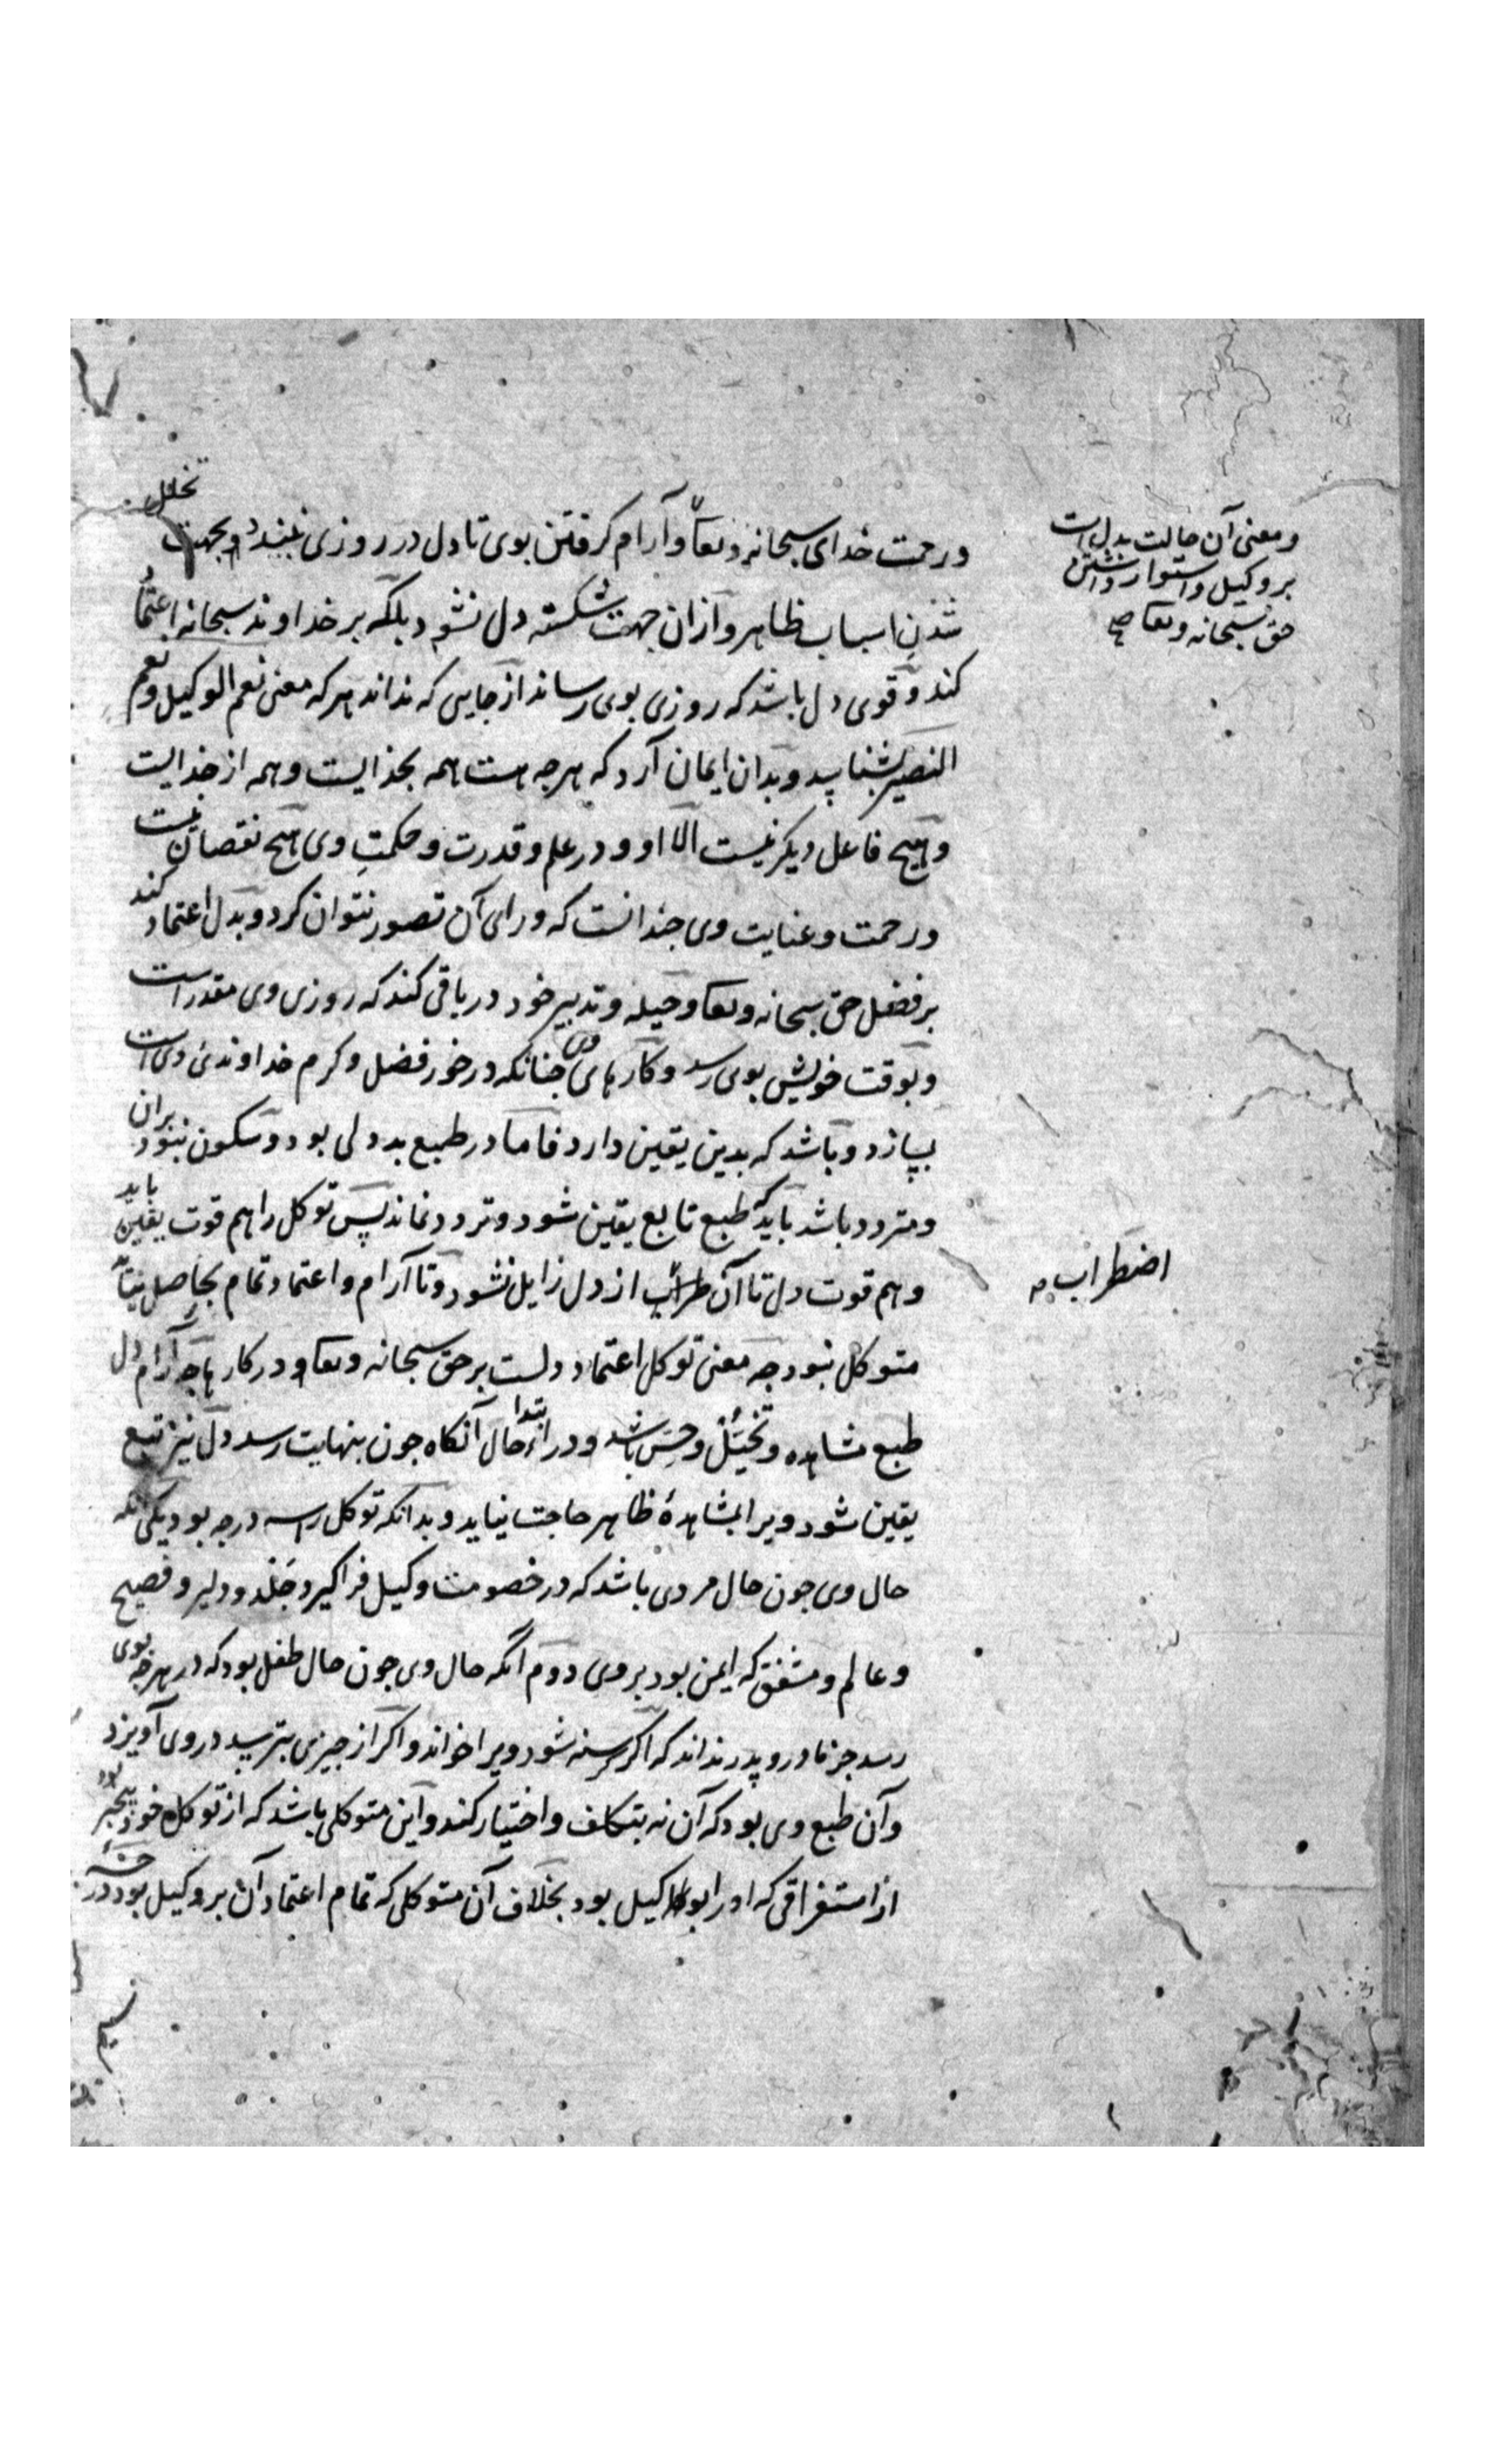 ورحمت خدای سبحانه وتعا وآرام کرفتن بوی تا دل در روزی نبندد وبجهت تخلل
شدن اسباب ظاهر و ازان جهت شکسته دل نشود بلکه بر خداوند سبحانه اعتماد
کند و قوی دل باشد که روزی بوی رساند از جایی که نداند هرکه معنی نعم الوکیل ونعم
النصیر بشناسد وبدان ایمان آرد که هرجه هست همه بخدایست وهمه از خدایست
وهیچ فاعل دیکر نیست الا او ودر علم وقدرت وحکمتِ وی هیچ نقصان نیست
ورحمت وعنایت وی جندانست که ورای آن تصور نتوان کرد وبدل اعتماد کند
بر فضل حق سبحانه وتعا وحیله وتدبیر خود در باقی کند که روزی وی مقدر است
وبوقت خویش بوی رسد وکارهای وی جنانکه درخور فضل وکرم خداوندی وی است
بسازد وباشد که بدین یقین دارد فاما در طبع بددلی بود وسکون نبود بران
ومتردد باشد باید که طبع تابع یقین شود وتردد نماند پس توکل را هم قوت یقین باید
وهم قوت دل تا آن اضطراب از دل زایل نشود وتا آرام واعتماد تمام بحاصل نیاید
متوکل نبود جه معنی توکل اعتماد دلست بر حق سبحانه وتعا ودر کارها جه آرام دل
طبع مشاهده وتخیّل وحسّ باشد ودر ابتداء حال آنکاه جون بنهایت رسد دل نیز تبع
یقین شود ویرا بمشاهدهٔ ظاهر حاجت نیاید وبدانکه توکل را سه درجه بود یکی آنکه
حال وی جون حال مردی باشد که در خصومت وکیل فراکیرد جَلْد ودلیر وفصیح
وعالم ومشفق که ایمن بود بر وی دوم آنکه حال وی جون حال طفل بود که در هرجه بوی
رسد جز مادر وپدر نداند که اکر کرسنه شود ویرا خواند واکر از جیزی بترسد در وی آویزد
وآن طبع وی بود که آن نه بتکلف واختیار کند واین متوکلی باشد که از توکل خود بیخبر بود
از استغراقی که او را بوکیل بود بخلاف آن متوکلی که تمام اعتماد آن بر وکیل بود در
ومعنی آن حالت بدل است
بر وکیل واستوار داشتن
حق سبحانه وتعا صح
اضطراب